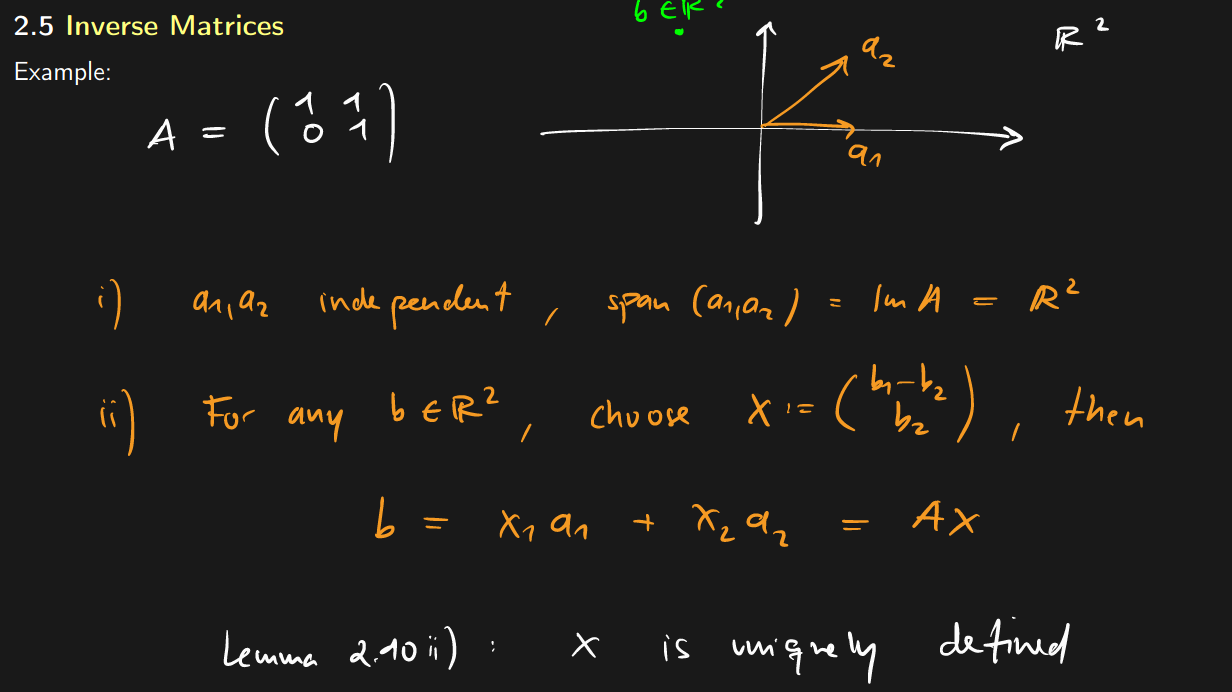 2.5 Inverse Matrices
b ∈ ℝ²
ℝ²
Example:
a₂
A = ( 1 1
0 1 )
a₁
i) a₁, a₂ independent, span (a₁, a₂) = Im A = ℝ²
ii) For any b ∈ ℝ², choose x := ( b₁ - b₂
b₂ ), then
b = x₁ a₁ + x₂ a₂ = Ax
Lemma 2.10 ii) : x is uniquely defined